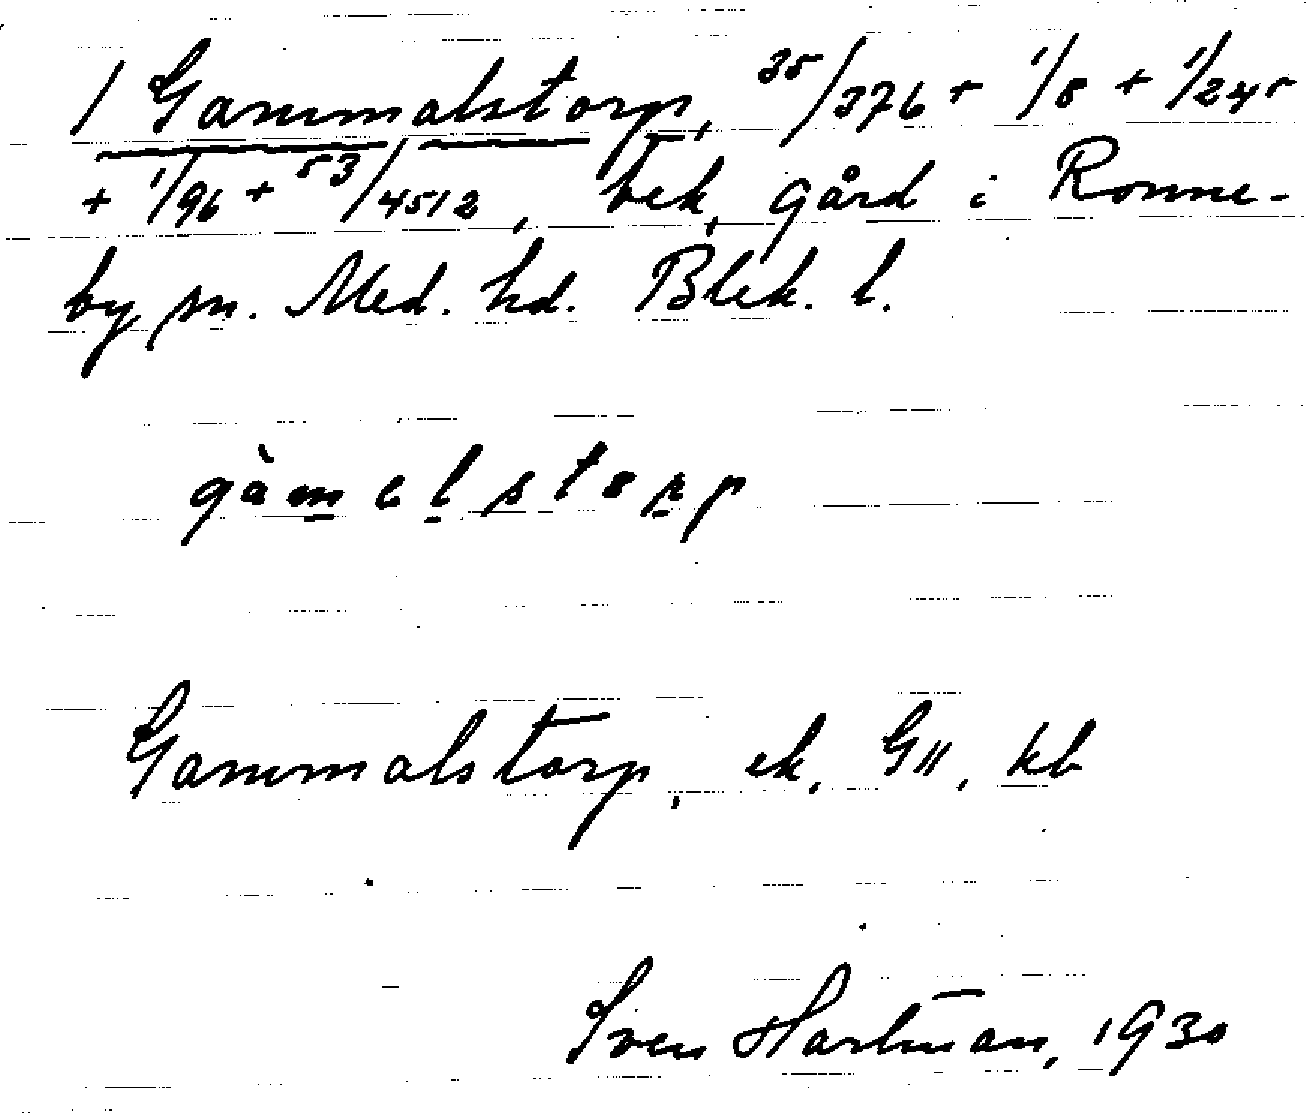 1 Gammalstorp, 35/376 + 1/8 + 1/245
+ 1/96 + 53/4512, bek. gård i Ronne-
by sn. Med. hd. Blek. l.
gàmelstorp
Gammalstorp, ek, GII, kb
Sven Hartman, 1930